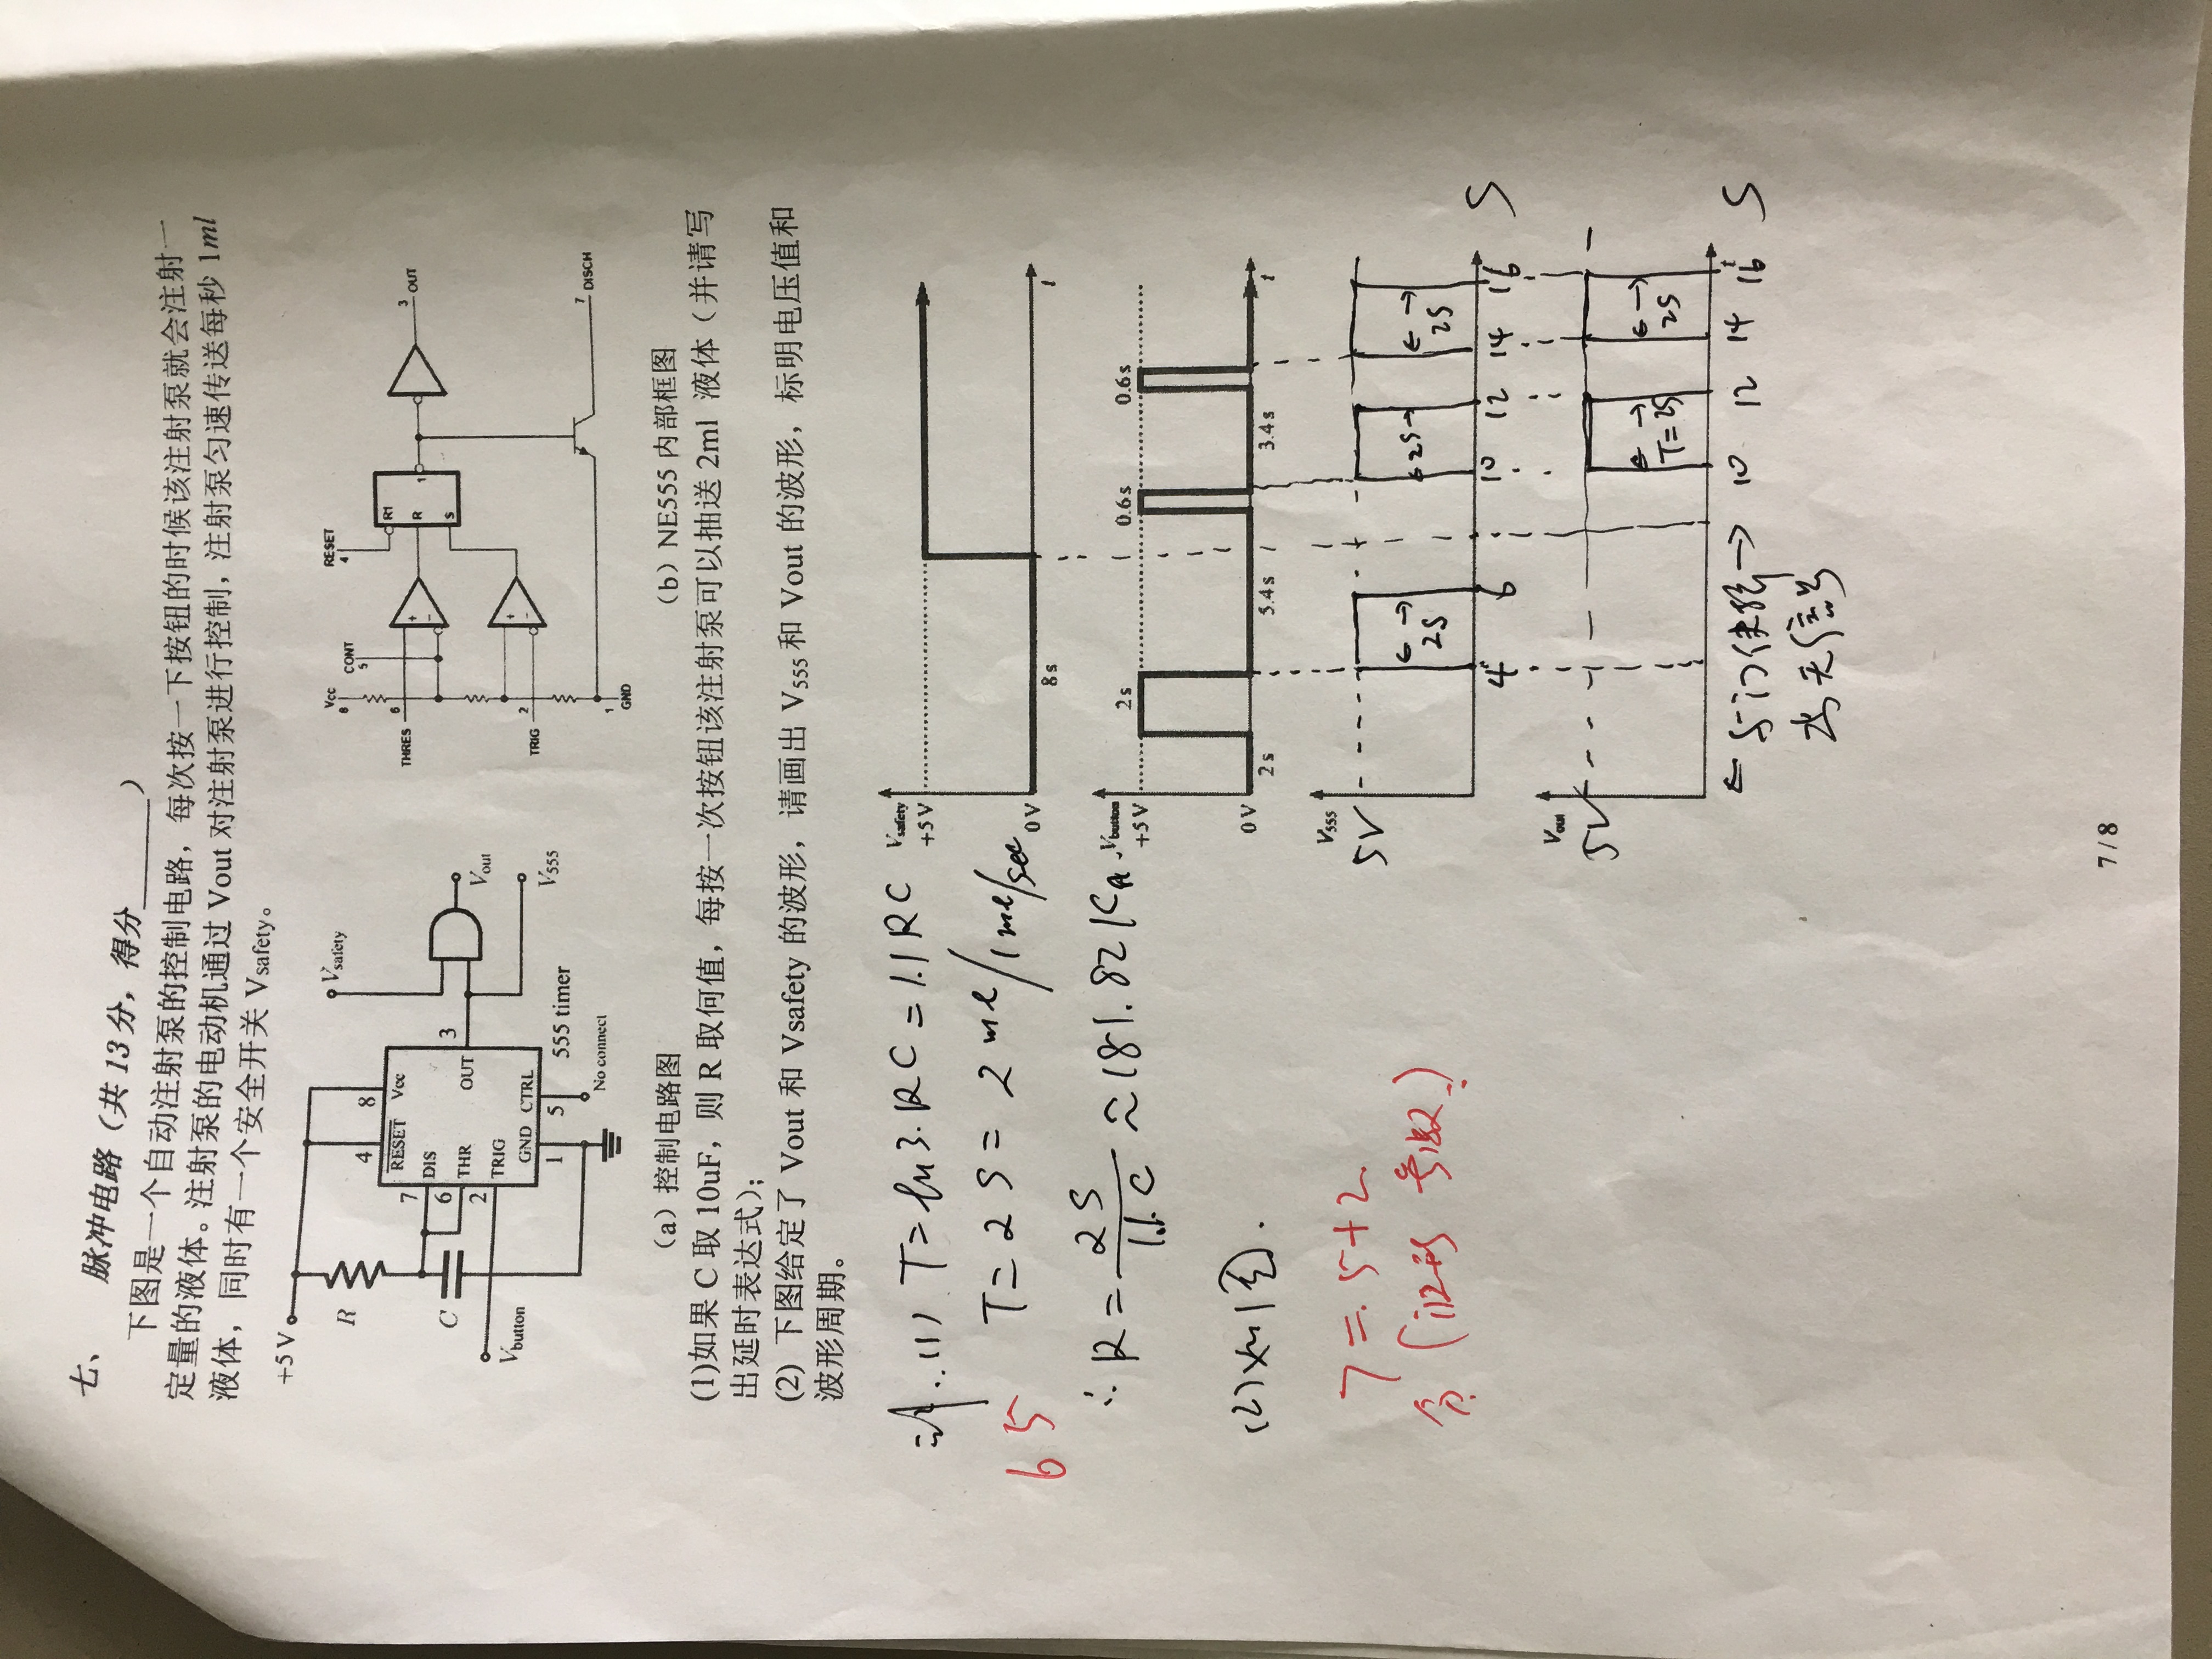 七、 脉冲电路（共 13 分，得分______）
下图是一个自动注射泵的控制电路，每次按一下按钮的时候该注射泵就会注射一
定量的液体。注射泵的电动机通过 Vout 对注射泵进行控制，注射泵匀速传送每秒 1ml
液体，同时有一个安全开关 Vsafety。
+5 V
R
C
Vbutton
4 8
RESET Vcc
7
DIS
6
THR
2
TRIG
OUT
3
GND CTRL
1 5
555 timer
No connect
Vsafety
Vout
V555
Vcc
8
CONT
5
RESET
4
THRES
6
R1
R
S
1
3 OUT
TRIG
2
7 DISCH
1
GND
（a）控制电路图
（b）NE555 内部框图
(1)如果 C 取 10uF，则 R 取何值，每按一次按钮该注射泵可以抽送 2ml 液体（并请写
出延时表达式）；
(2) 下图给定了 Vout 和 Vsafety 的波形，请画出 V555 和 Vout 的波形，标明电压值和
波形周期。
(1) T = ln3·RC = 1.1RC
T = 2S = 2ml/1ml/sec
∴ R = 2S/1.1C ≈ 181.82K
(2) 如图.
7 = 5+2
Vsafety
+5 V
0 V
8 s
t
Vbutton
+5 V
2 s
0.6 s
0.6 s
0 V
2 s
5.4 s
3.4 s
t
V555
5V
2S
2S
2S
4 6 10 12 14 16 S
Vout
5V
T=2S
2S
t
10 12 14 16 S
与门使能
信号
7 / 8